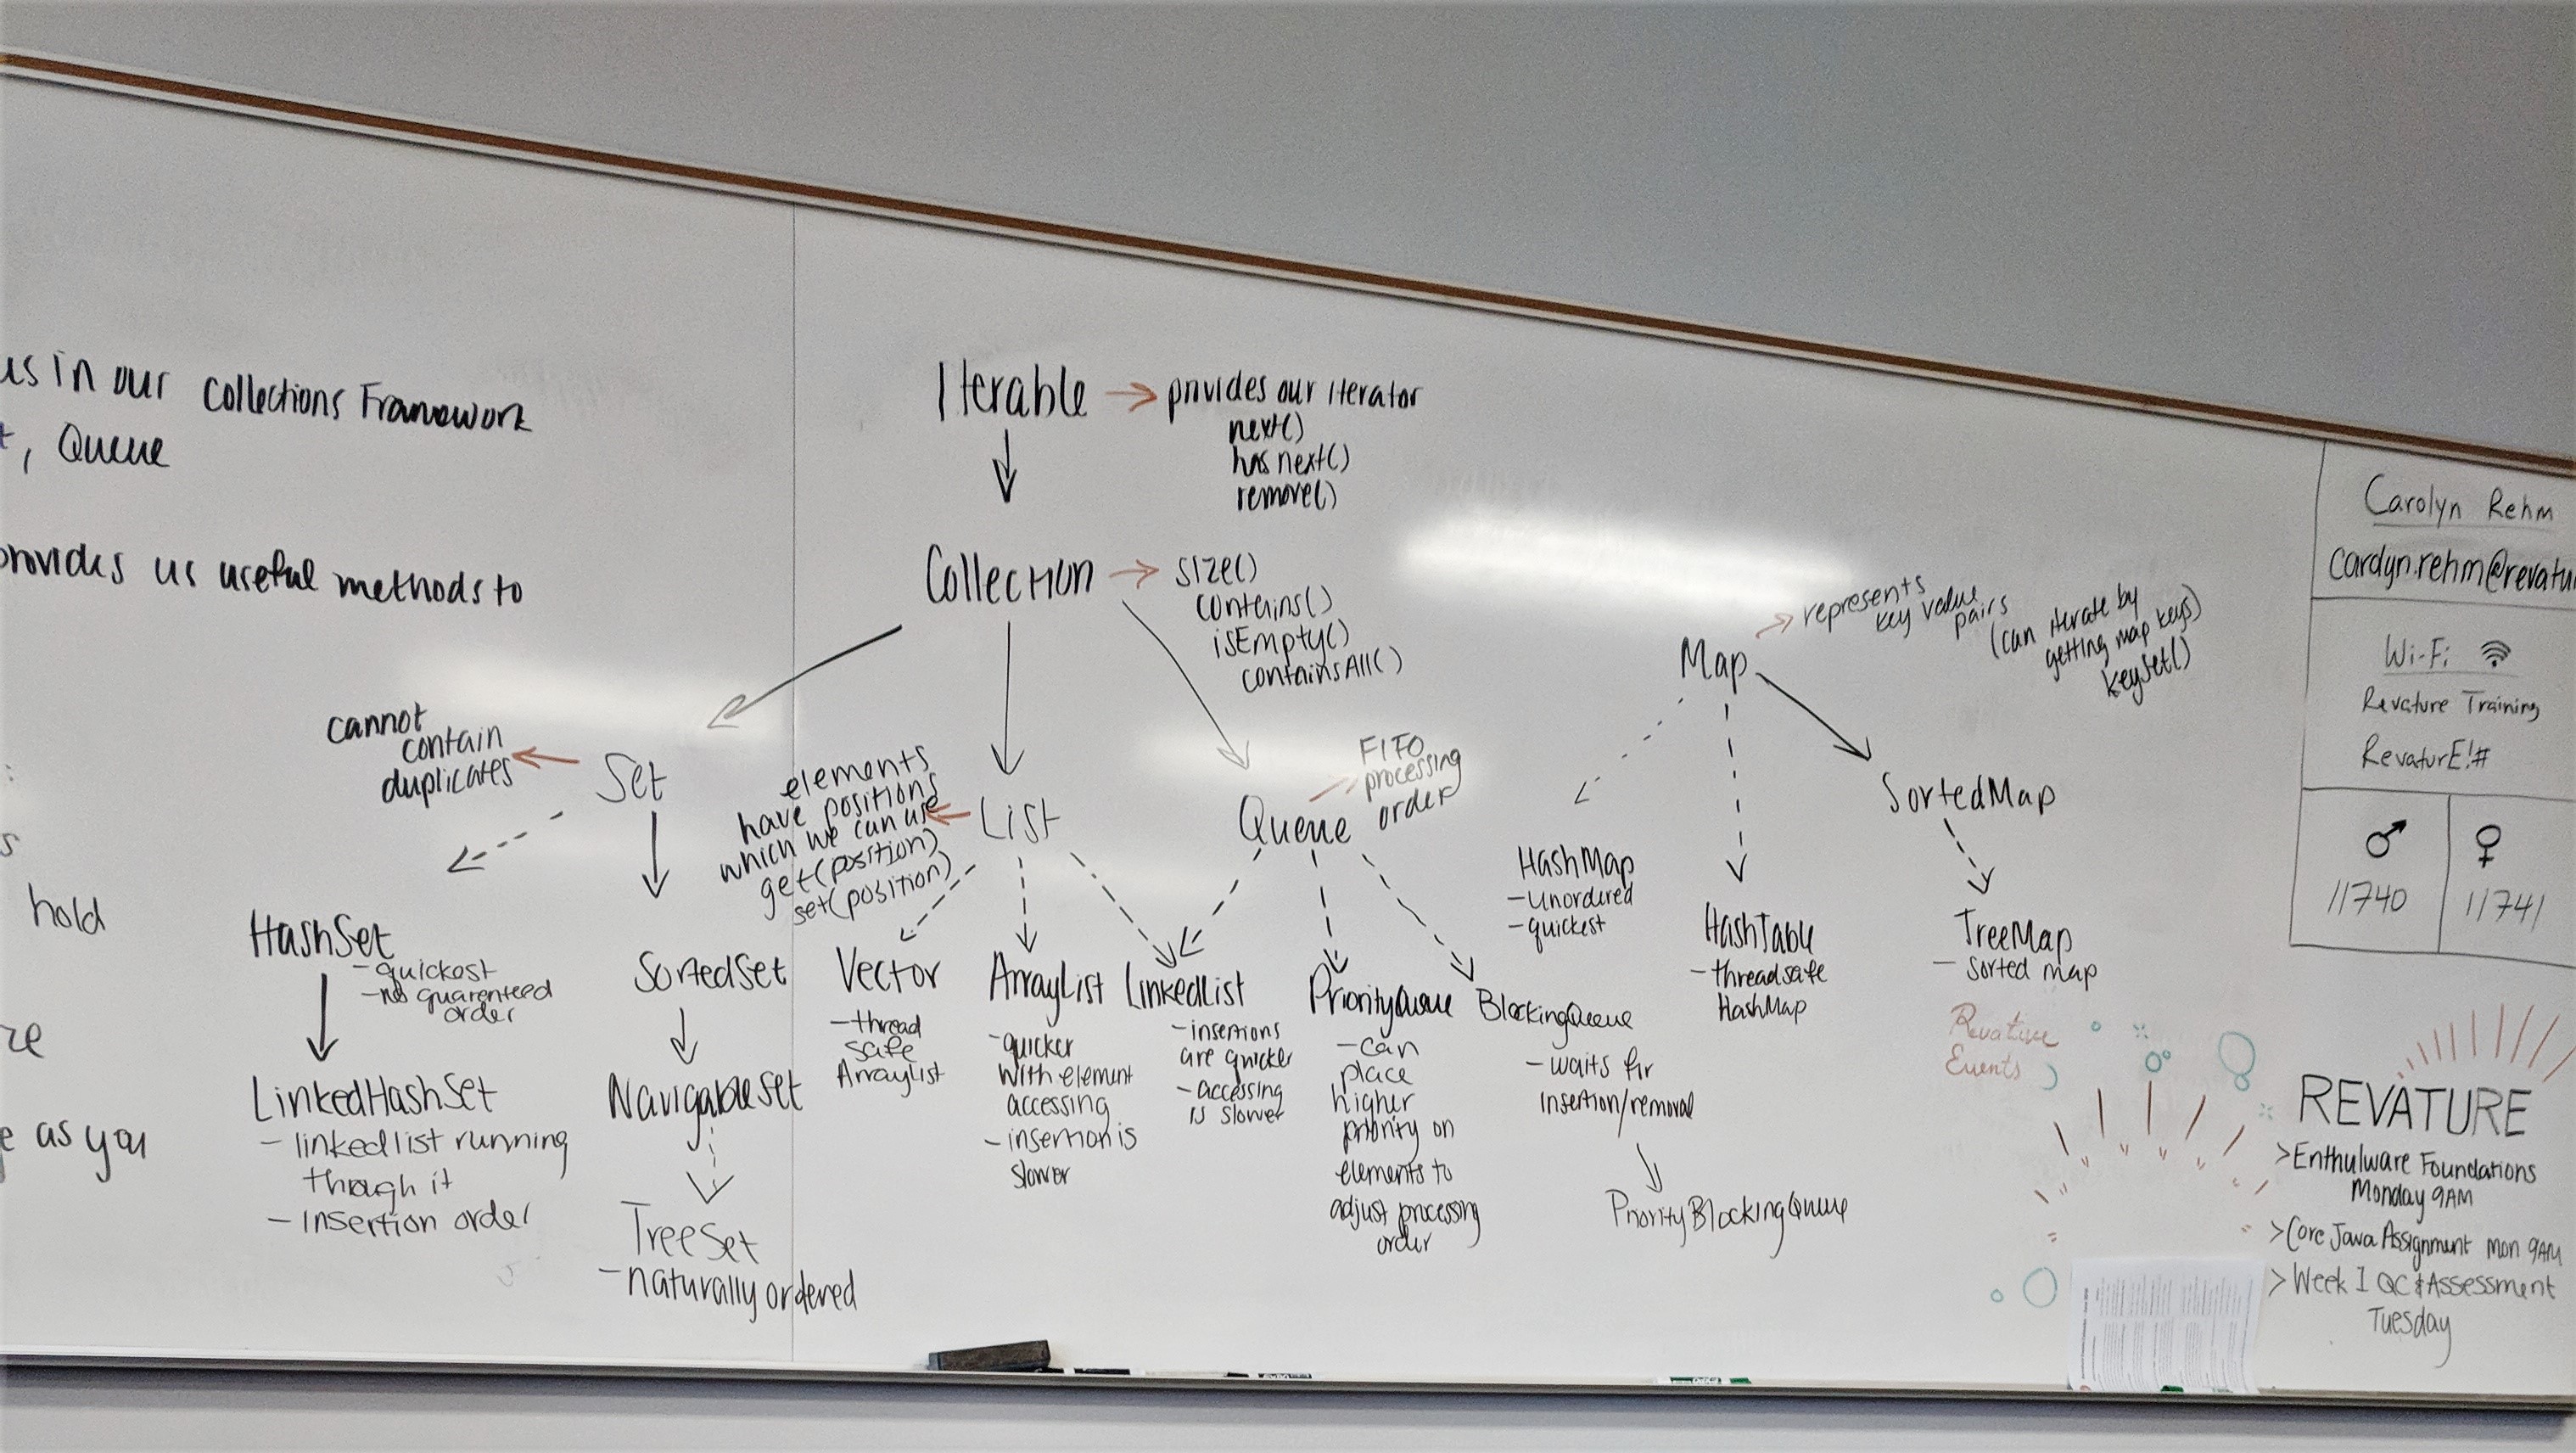 us in our Collections Framework
, Queue
provides us useful methods to
hold
as you
Iterable
provides our iterator
next()
hasnext()
remove()
Collection
size()
contains()
isEmpty()
containsAll()
Set
cannot
contain
duplicates
HashSet
- quickest
- no guarenteed
order
LinkedHashSet
- linkedlist running
through it
- insertion order
SortedSet
NavigableSet
TreeSet
- naturally ordered
List
elements
have positions
which we can use
get(position)
set(position)
Vector
- thread
safe
ArrayList
ArrayList
- quicker
with element
accessing
- insertion is
slower
LinkedList
- insertions
are quicker
- accessing
is slower
Queue
FIFO
processing
order
PriorityQueue
- can
place
higher
priority on
elements to
adjust processing
order
BlockingQueue
- waits for
insertion/removal
PriorityBlockingQueue
Map
represents
key value
pairs
(can iterate by
getting map keys)
keySet()
HashMap
- unordered
- quickest
HashTable
- threadsafe
HashMap
SortedMap
TreeMap
- sorted map
Carolyn Rehm
carolyn.rehm@revatu
Wi-Fi
Revature Training
RevaturE!#
♂ ♀
11740 11741
Revature
Events
REVATURE
>Enthulware Foundations
Monday 9AM
>Core Java Assignment Mon 9AM
>Week 1 QC & Assessment
Tuesday